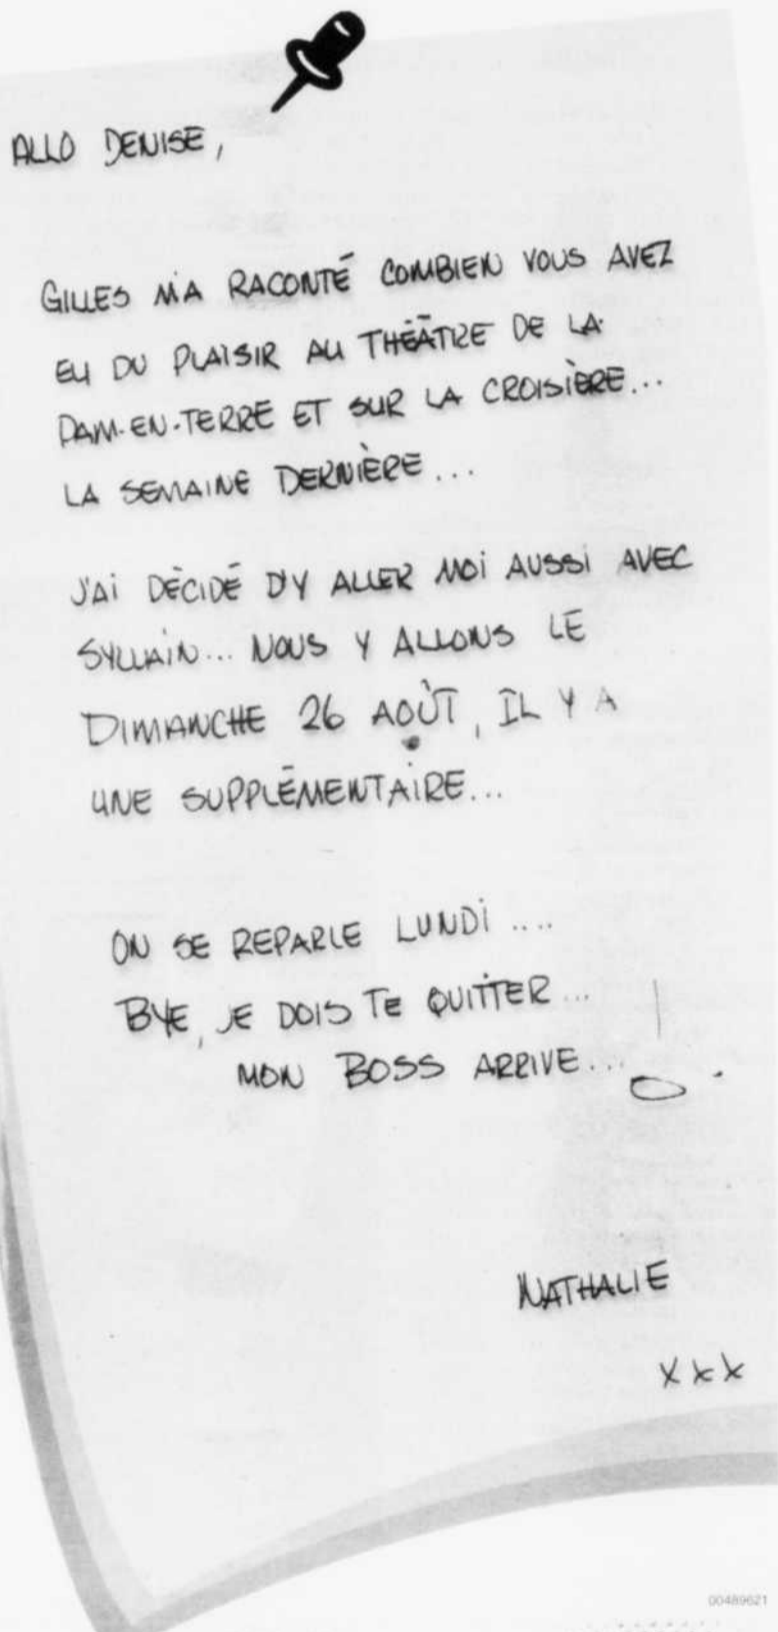 ALLO DENISE,
GILLES M'A RACONTÉ COMBIEN VOUS AVEZ
EU DU PLAISIR AU THÉÂTRE DE LA
DAM-EN-TERRE ET SUR LA CROISIÈRE...
LA SEMAINE DERNIÈRE...
J'AI DÉCIDÉ D'Y ALLER MOI AUSSI AVEC
SYLVAIN... NOUS Y ALLONS LE
DIMANCHE 26 AOÛT, IL Y A
UNE SUPPLÉMENTAIRE...
ON SE REPARLE LUNDI ....
BYE, JE DOIS TE QUITTER...
MON BOSS ARRIVE...
NATHALIE
XXX
00489621